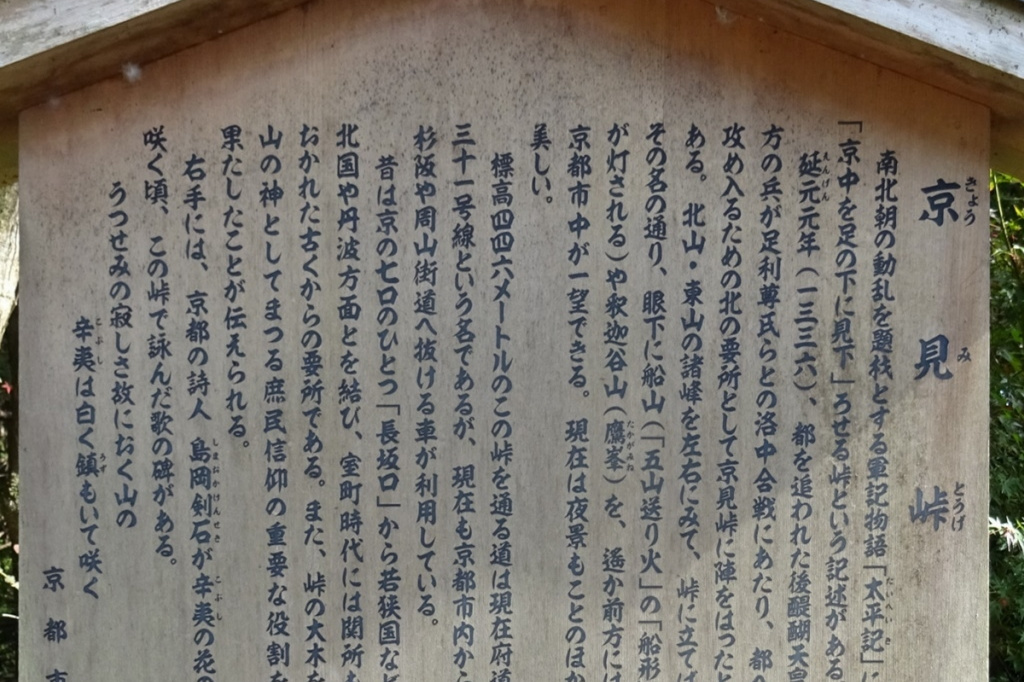 京見峠
きょう み とうげ
南北朝の動乱を題材とする軍記物語「太平記」に
たいへいき
「京中を足の下に見下」ろせる峠という記述がある
延元元年(一三三六)、都を追われた後醍醐天皇
えんげん
方の兵が足利尊氏らとの洛中合戦にあたり、都へ
攻め入るための北の要所として京見峠に陣をはったと
ある。北山・東山の諸峰を左右にみて、峠に立てば
その名の通り、眼下に船山(「五山送り火」の「船形
が灯される)や釈迦谷山(鷹峯)を、遙か前方には
たかがみね
京都市中が一望できる。現在は夜景もことのほか
美しい。
標高四四六メートルのこの峠を通る道は現在府道
三十一号線という名であるが、現在も京都市内から
杉阪や周山街道へ抜ける車が利用している。
昔は京の七口のひとつ「長坂口」から若狭国など
北国や丹波方面とを結び、室町時代には関所も
おかれた古くからの要所である。また、峠の大木を
山の神としてまつる庶民信仰の重要な役割を
果たしたことが伝えられる。
右手には、京都の詩人 島岡剣石が辛夷の花の
しまおかけんせき こぶし
咲く頃、この峠で詠んだ歌の碑がある。
うつせみの寂しさ故におく山の
辛夷は白く鎮もいて咲く
こぶし うず
京都市